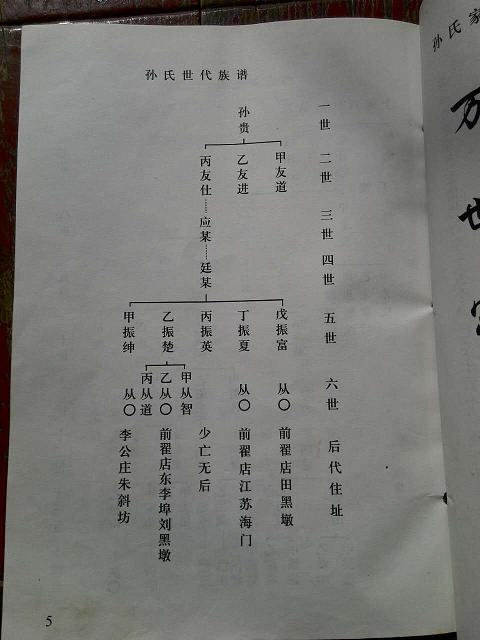 孙氏世代族谱
一世
二世
三世
四世
五世
六世
后代住址
孙贵
甲友道
乙友进
丙友仕……应某……廷某
戊振富
从〇
前翟店田黑墩
丁振夏
从〇
前翟店江苏海门
丙振英
少亡无后
乙振楚
甲从智
乙从〇
丙从道
前翟店东李埠刘黑墩
甲振绅
从〇
李公庄朱斜坊
5
孙氏家
万世